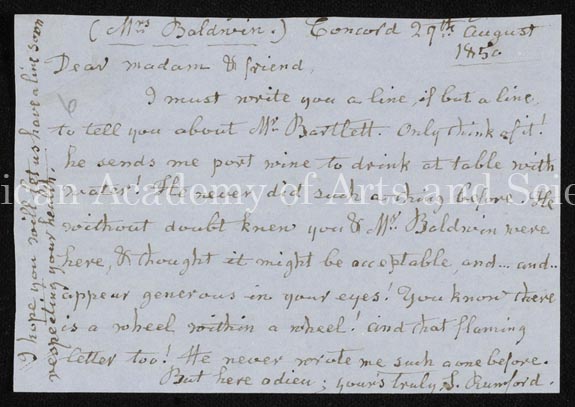 (Mrs Baldwin.) Concord 29th August
1850
Dear madam & friend,
I must write you a line, if but a line,
to tell you about Mr Bartlett. Only think of it!
he sends me port wine to drink at table with
water! He never did such a thing before. He
without doubt knew you & Mr Baldwin were
here, & thought it might be acceptable, and... and..
appear generous in your eyes! You know there
is a wheel within a wheel! and that flaming
letter too! He never wrote me such a one before.
But here adieu; yours truly, S. Rumford.
I hope you will let us have a line soon
respecting your health.
6
ican Academy of Arts and Scie